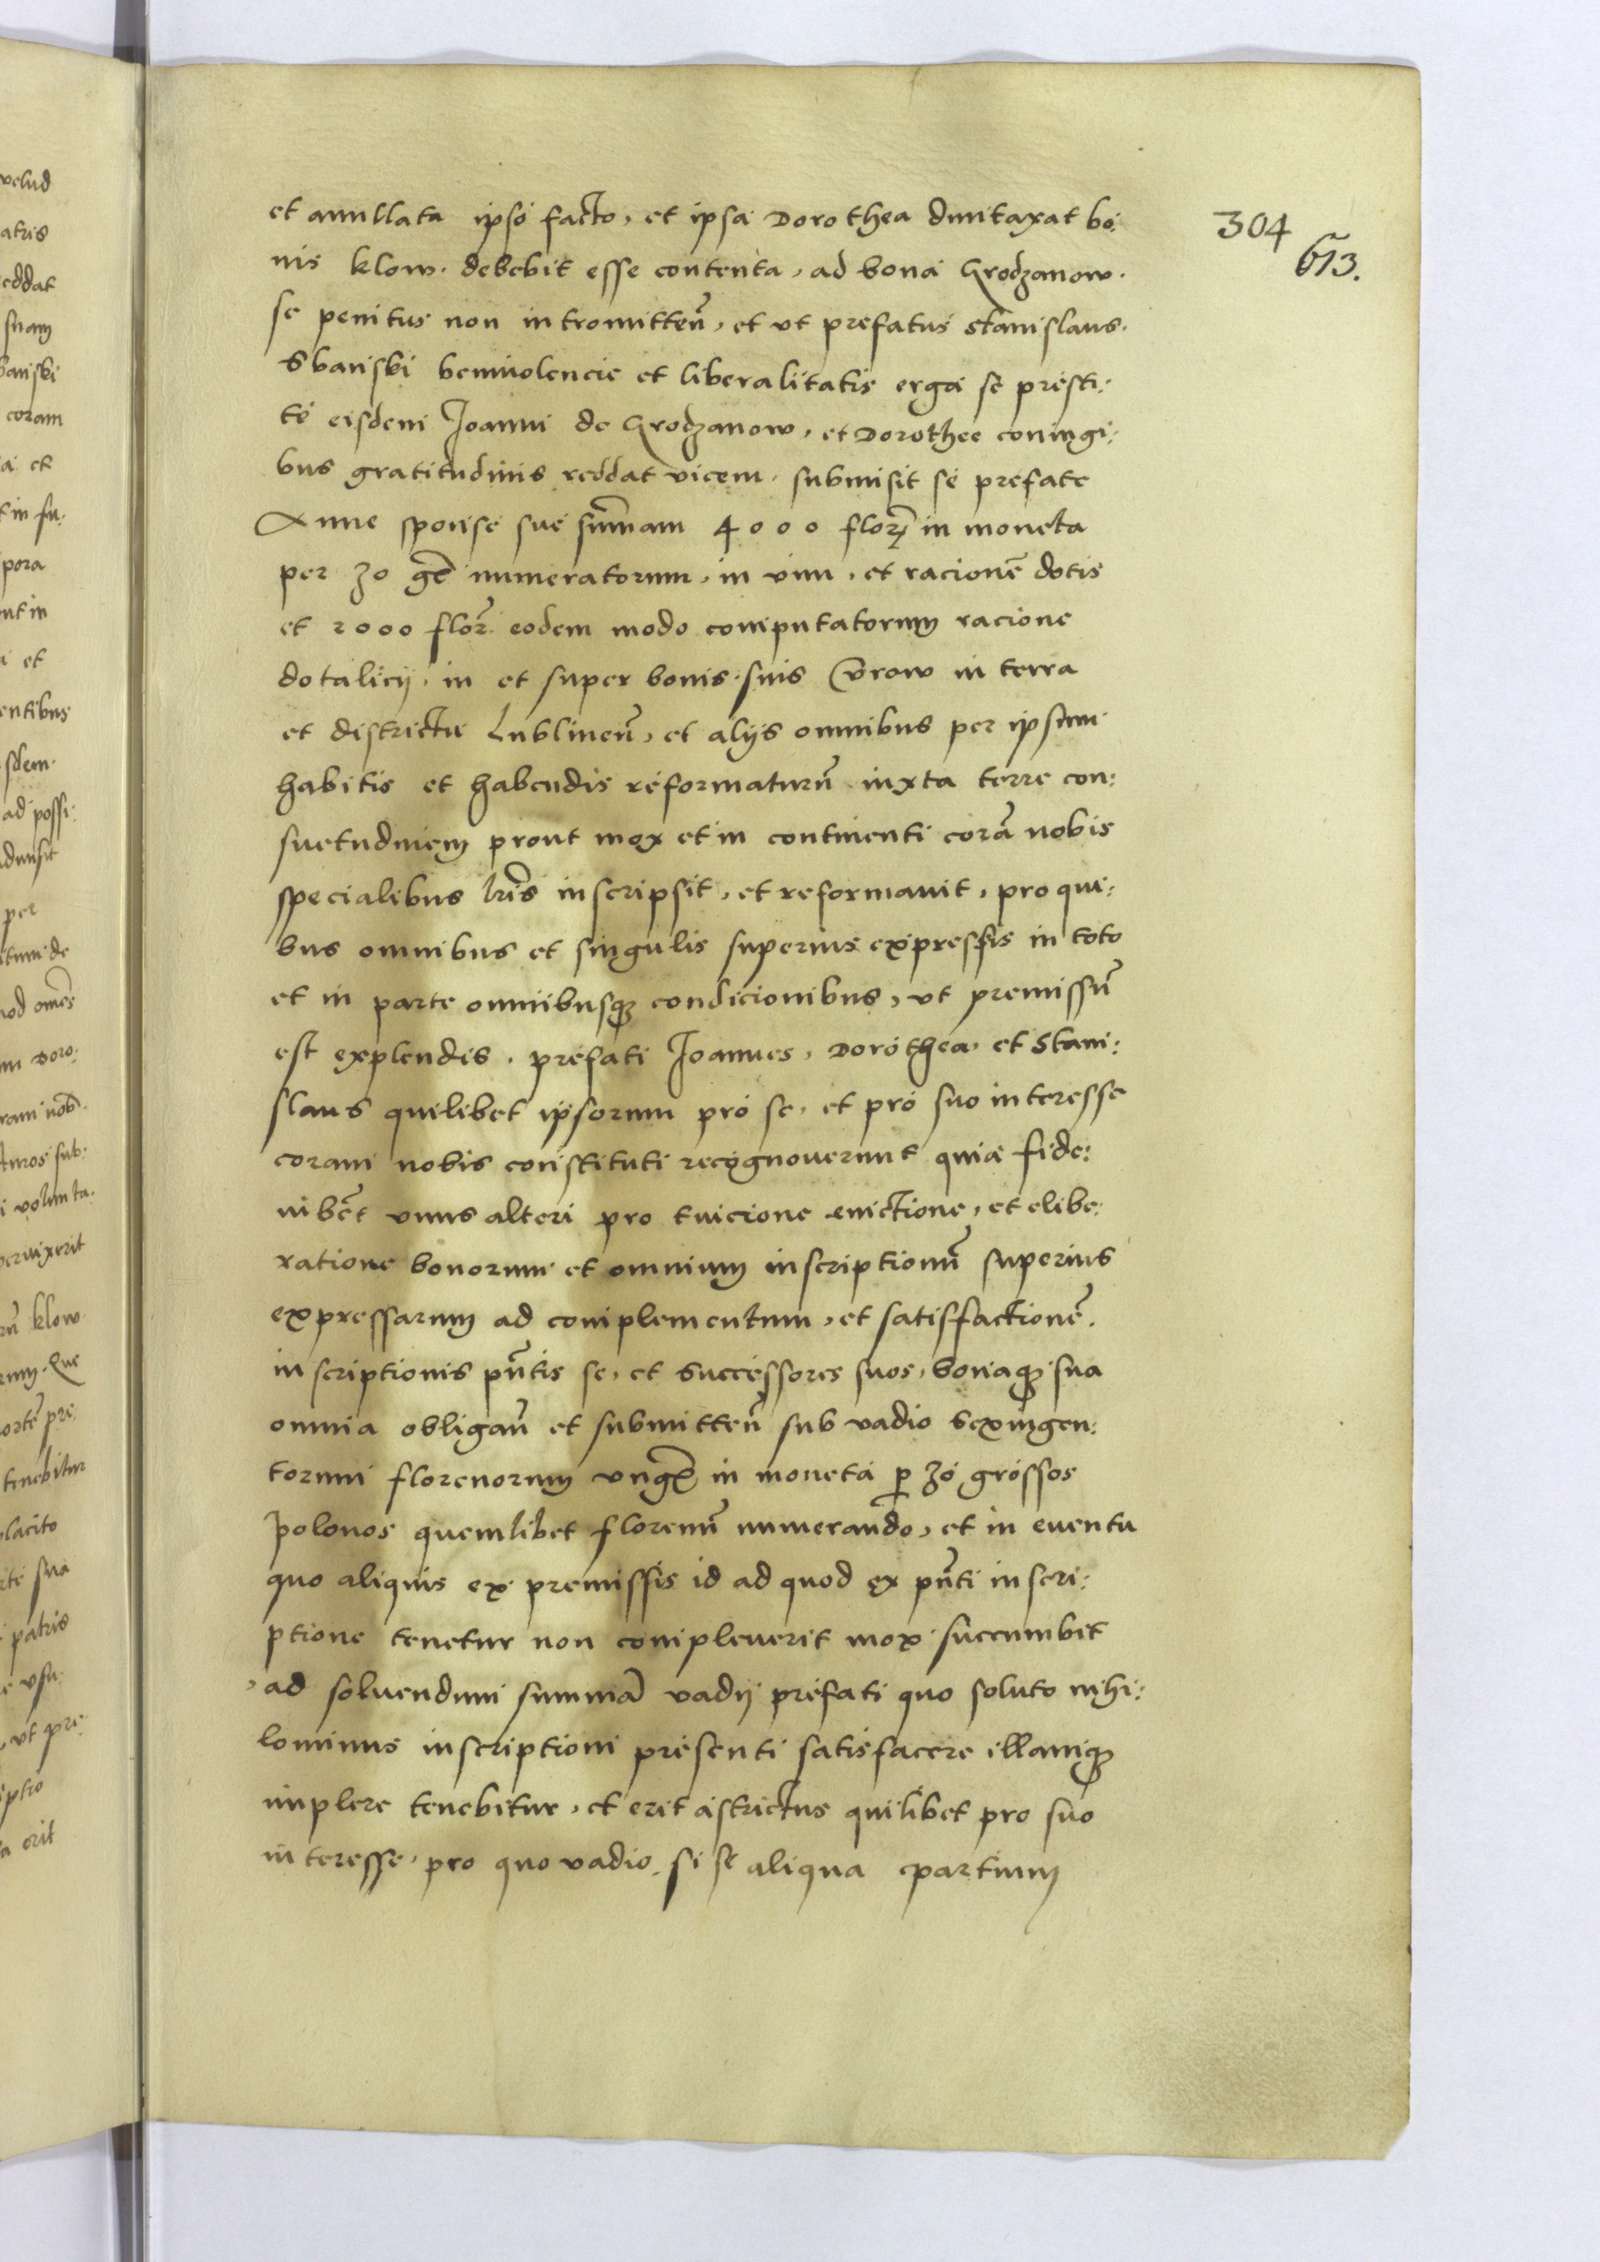 et anullata ipso facto, et ipsa Dorothea duntaxat bo:
nis klow. debebit esse contenta, ad bona Grodzanow.
se penitus non intromitteñ, et ut prefatus Stanislaus.
Sbanski beniuolencie et liberalitatis erga se presti:
te eisdem Joanni de Grodzanow, et Dorothee coniugi:
bus gratitudinis reddat vicem. submisit se prefate
Anne sponse sue sum̃am 4000 flor̃ in moneta
per 30 gr̃ numeratorum, in vim, et racionẽ dotis
et 2000 flor̃. eodem modo computatorum racione
dotalicij, in et super bonis suis in terra
et districtu Lublineñ, et alijs omnibus per ipsum
habitis et habendis reformaturũ iuxta terre con:
suetudinem prout mox et in continenti corã nobis
specialibus lr̃is inscripsit, et reformauit, pro qui:
bus omnibus et singulis superius expressis in toto
et in parte omnibusq; condicionibus, ut premissũ
est explendis. prefati Joannes, Dorothea, et Stani:
slaus quilibet ipsorum pro se, et pro suo interesse
coram nobis constituti recognouerunt quia fide:
iubẽt unus alteri pro tuicione euictione, et elibe:
ratione bonorum et omnium inscriptionũ superius
expressarum ad complementum, et satisfactionẽ.
inscriptionis pñtis se, et successores suos, bonaq; sua
omnia obligañ et submitteñ sub vadio sexingen:
torum florenorum ung̃ in moneta p̱ 30 grossos
polonos quemlibet florenũ numerando, et in euentu
quo aliquis ex premissis id ad quod ex pñti inscri:
ptione tenetur non compleuerit mox succumbet
ad soluendum summã vadij prefati quo soluto nihi:
lominus inscriptioni presenti satisfacere illamq;
implere tenebitur, et erit astrictus quilibet pro suo
interesse, pro quo vadio, si se aliqua partium
304
613.